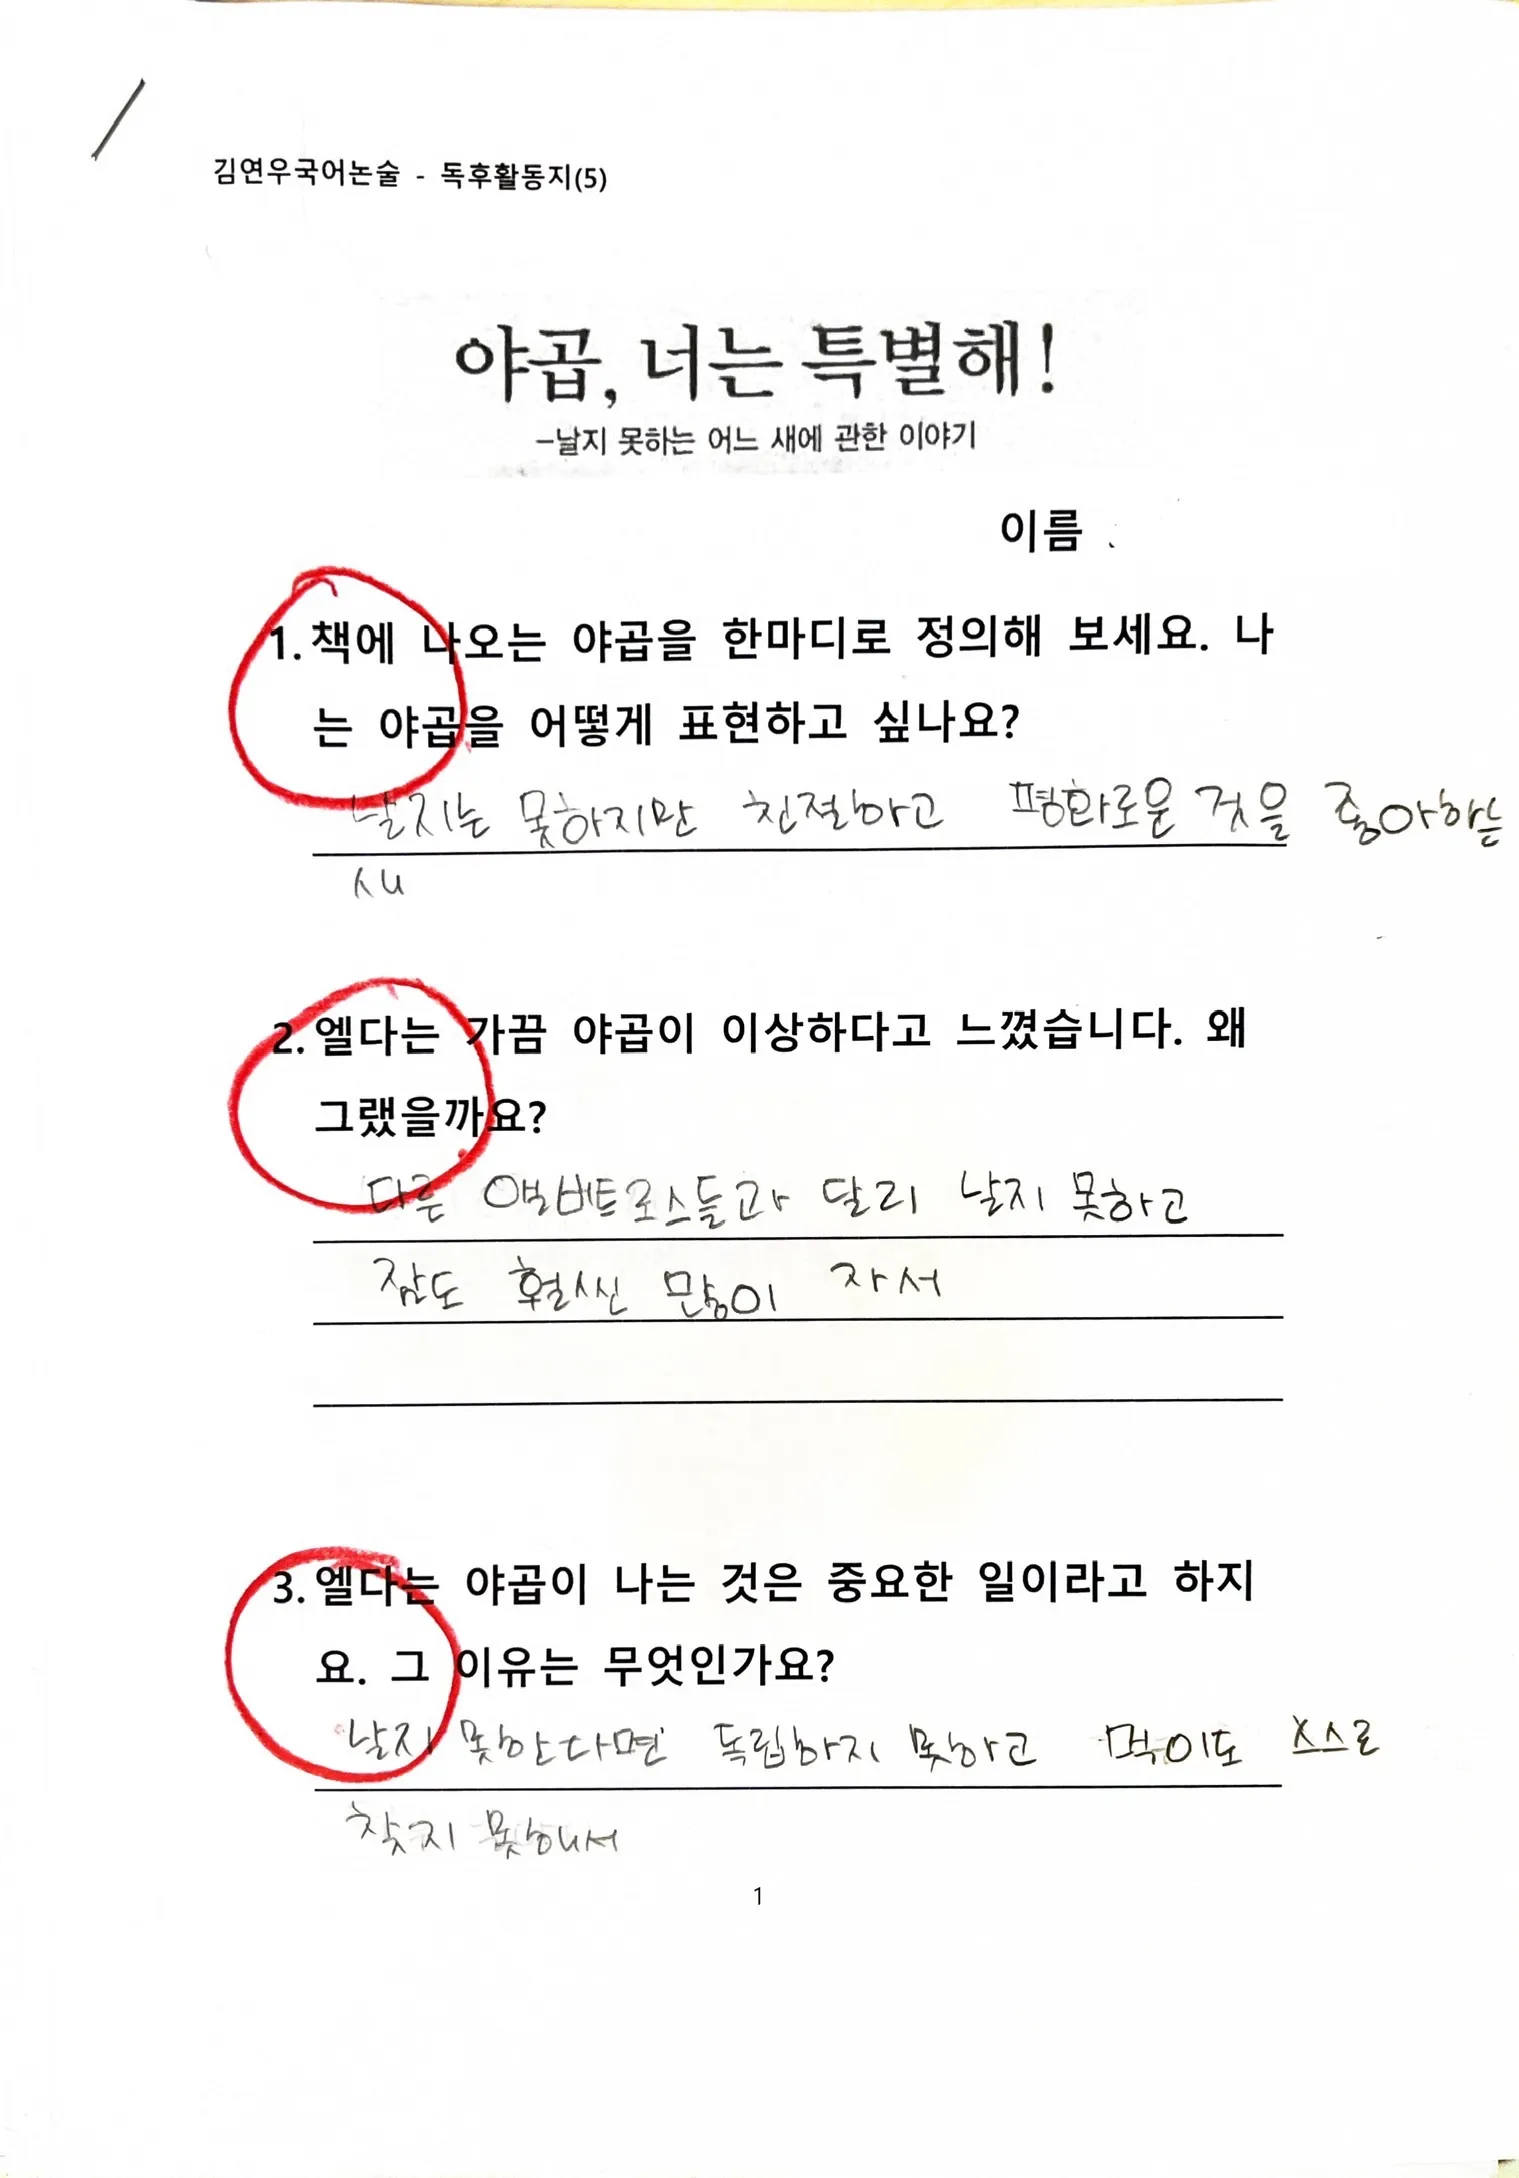 김연우국어논술 - 독후활동지(5)
야곱, 너는 특별해!
-날지 못하는 어느 새에 관한 이야기
이름 .
1. 책에 나오는 야곱을 한마디로 정의해 보세요. 나
는 야곱을 어떻게 표현하고 싶나요?
날지는 못하지만 친절하고 평화로운 것을 좋아하는
새
2. 엘다는 가끔 야곱이 이상하다고 느꼈습니다. 왜
그랬을까요?
다른 앨버트로스들과 달리 날지 못하고
잠도 훨씬 많이 자서
3. 엘다는 야곱이 나는 것은 중요한 일이라고 하지
요. 그 이유는 무엇인가요?
날지 못한다면 독립하지 못하고 먹이도 스스로
찾지 못해서
1